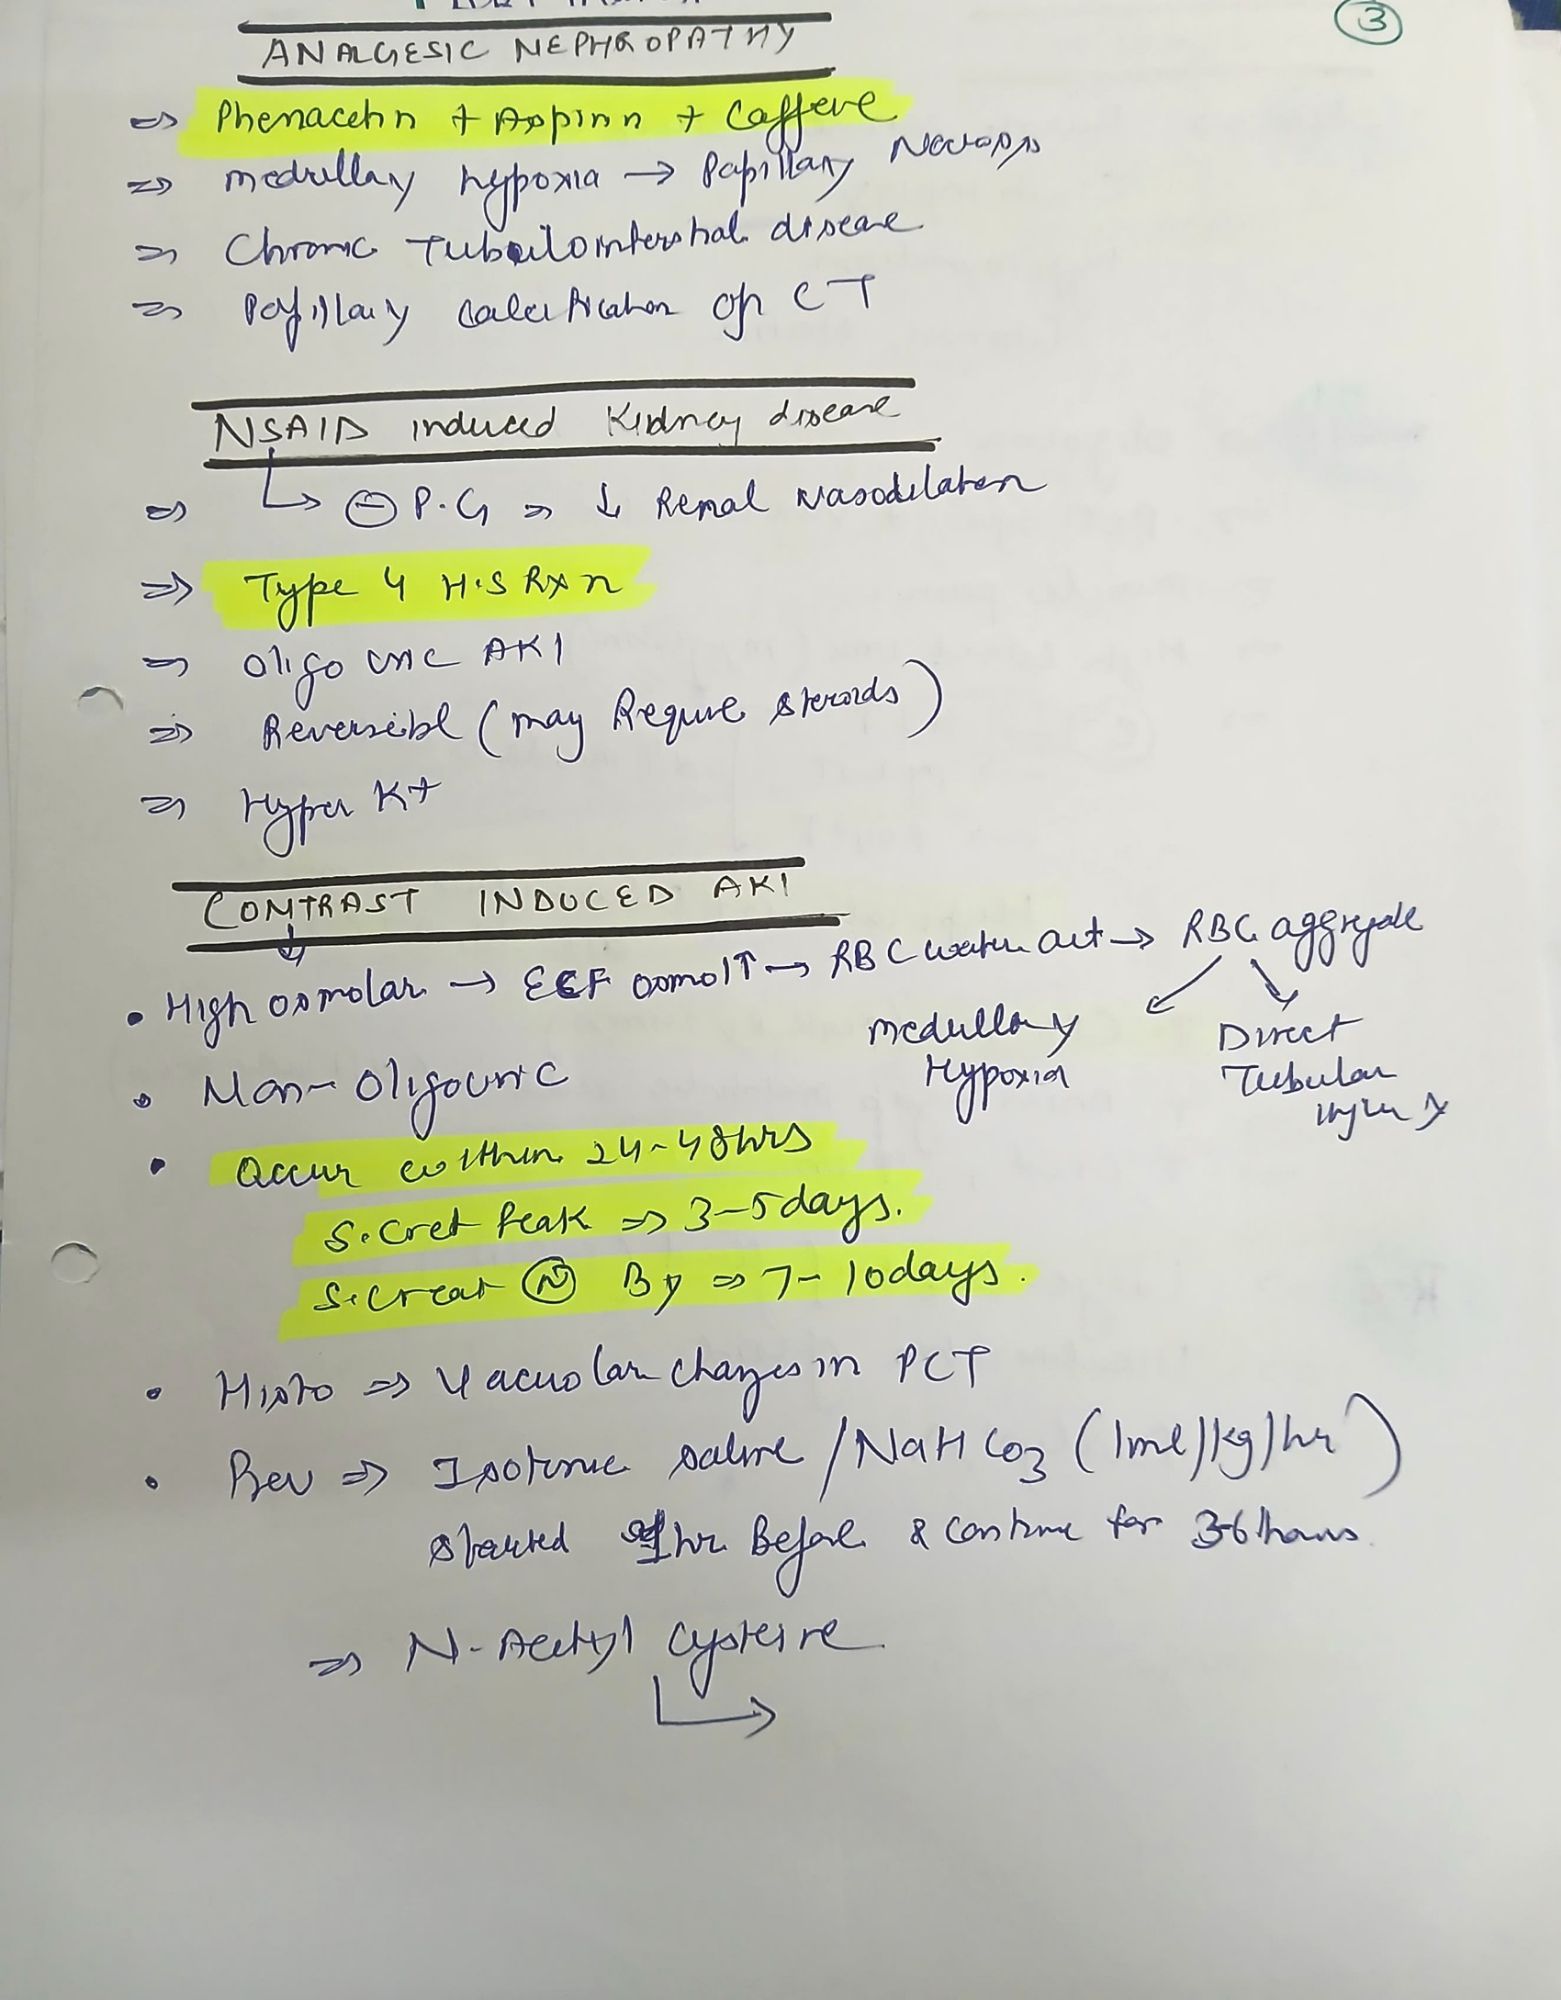 3
ANALGESIC NEPHROPATHY
⇒ Phenacetin + Aspirin + Caffeine
⇒ medullary hypoxia → Papillary Necrosis
⇒ Chronic Tubulointerstitial disease
⇒ Papillary calcification on CT
NSAID induced Kidney disease
⇒ ↳ ⊖ P.G ⇒ ↓ Renal vasodilation
⇒ Type 4 H.S Rxn
⇒ Oliguric AKI
⇒ Reversibl (may Require steroids)
⇒ Hyper K+
CONTRAST INDUCED AKI
• High osmolar → ECF osmol↑ → RBC water out → RBC aggregate
medullary Hypoxia
Direct Tubular injury
• Non-Oliguric
• Occur within 24-48hrs
S.Creat Peak ⇒ 3-5days.
S.Creat Ⓝ By ⇒ 7-10days.
• Histo ⇒ Vacuolar changes in PCT
• Prev ⇒ Isotonic saline / NaHCO3 (1ml/kg/hr)
started 1hr Before & continue for 3-6 hours.
⇒ N-Acetyl cysteine
↳